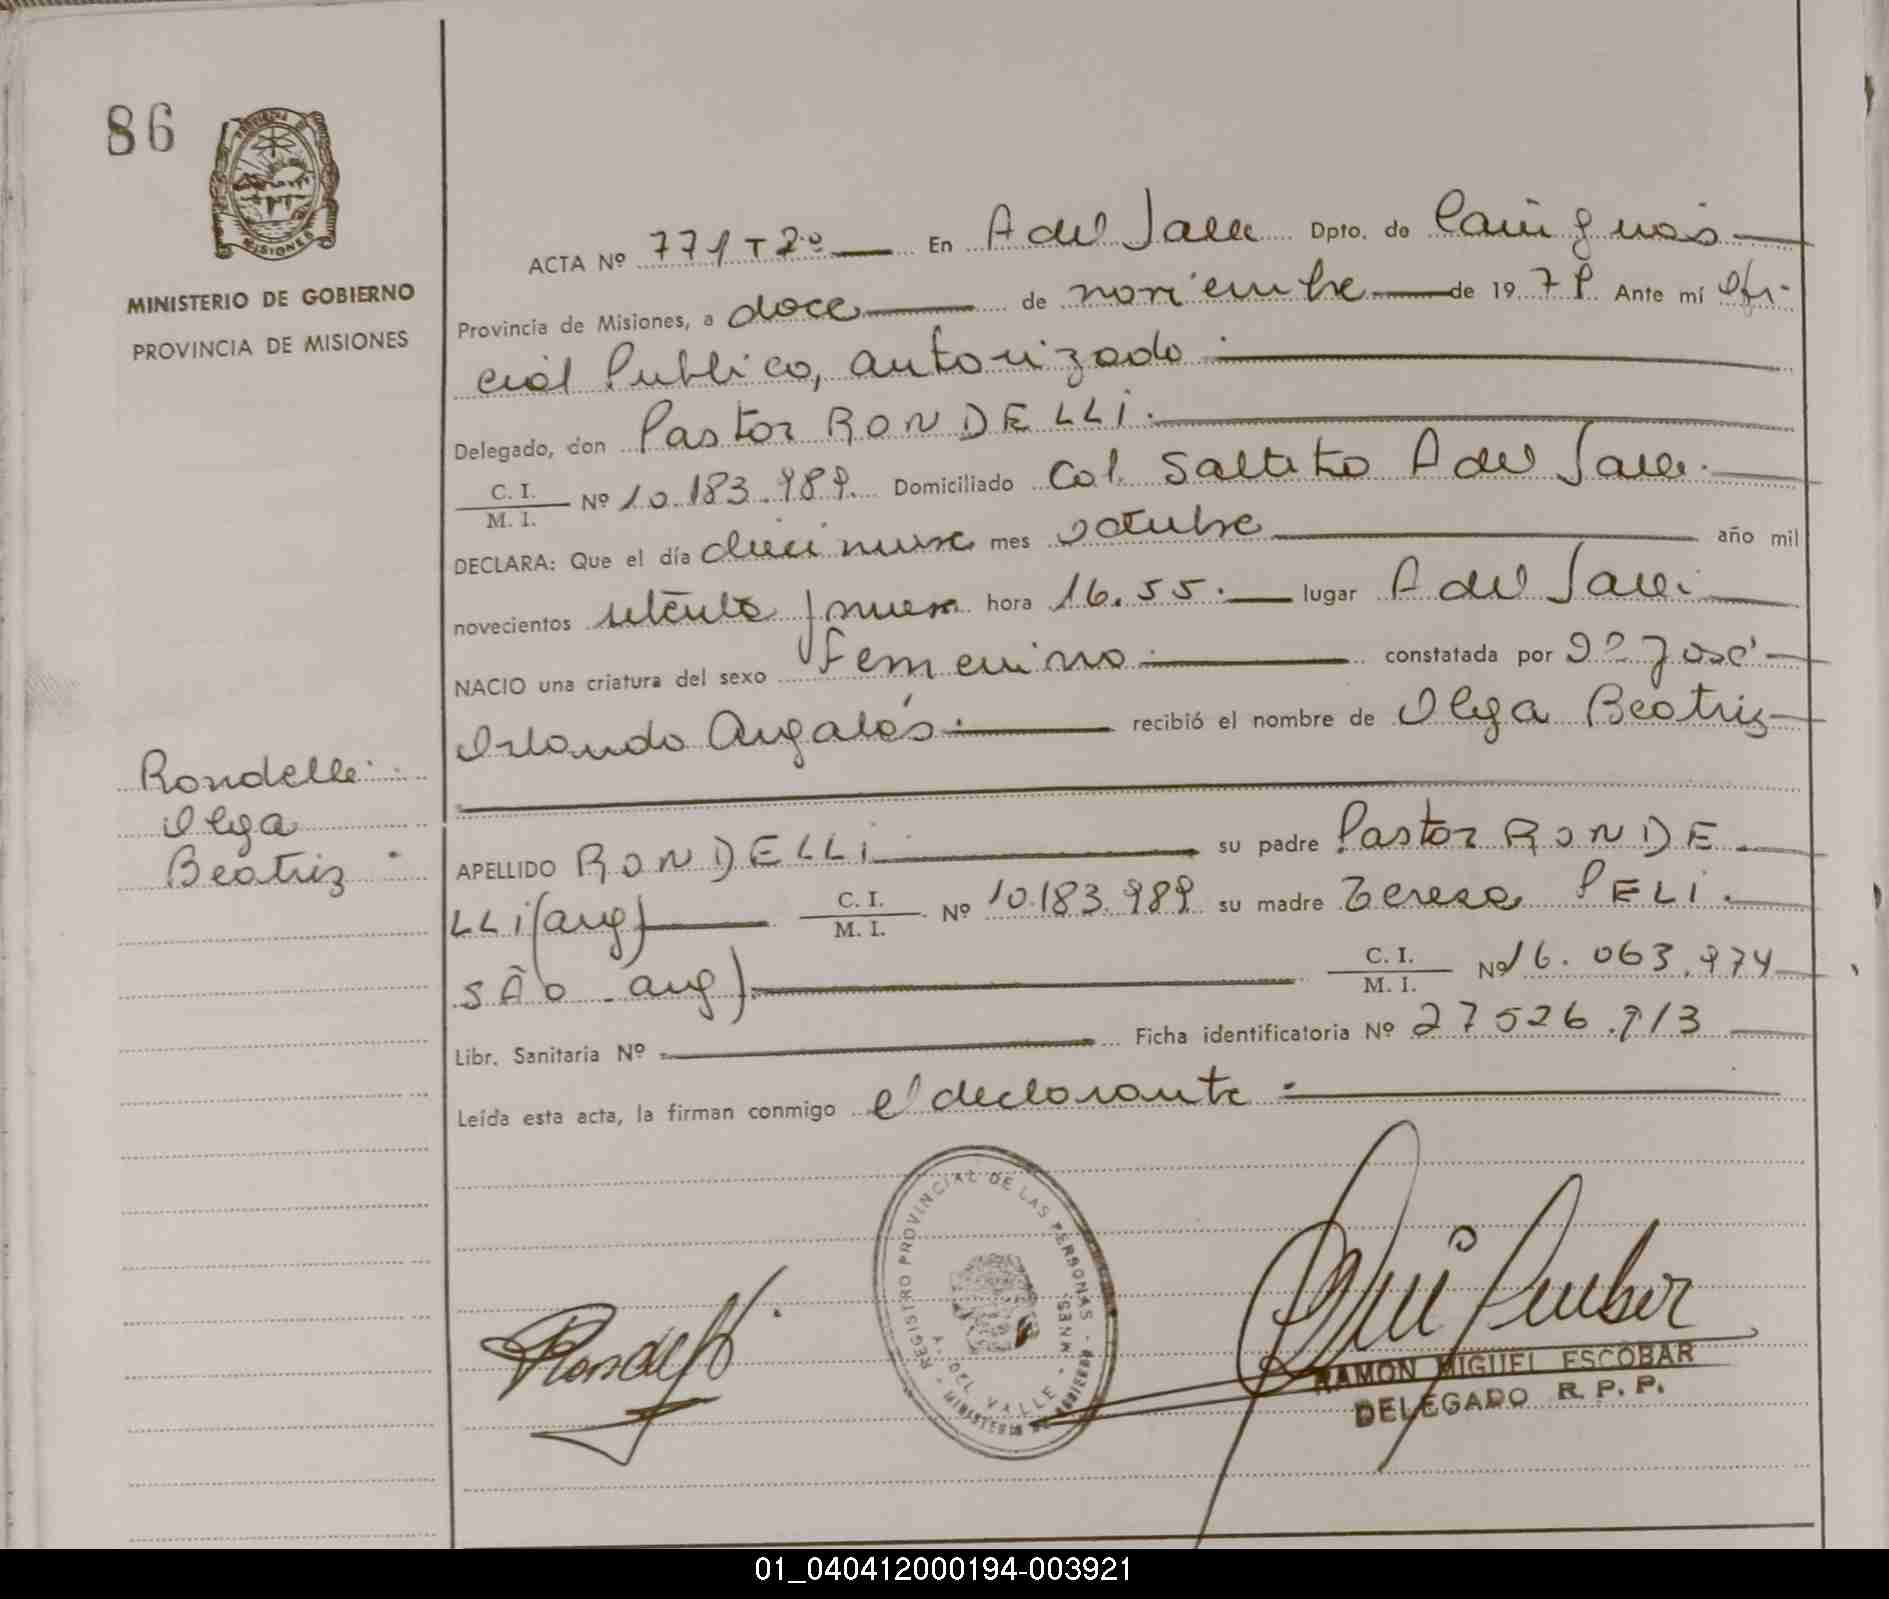 86
MISIONES
MINISTERIO DE GOBIERNO
PROVINCIA DE MISIONES
ACTA Nº 771 T 2º En A del Valle Dpto. de Cainguás
Provincia de Misiones, a doce de noviembre de 1979 Ante mí Ofi-
cial Publico, autorizado
Delegado, don Pastor RONDELLI.
C. I. / M. I. Nº 10.183.989. Domiciliado Col. Saltito A del Valle.
DECLARA: Que el día diecinueve mes octubre año mil
novecientos setenta y nueve hora 16.55. lugar A del Valle
NACIO una criatura del sexo femenino constatada por José
Orlando recibió el nombre de Olga Beatriz
Rondelli
Olga
Beatriz
APELLIDO RONDELLI su padre Pastor RONDE
LLI (arg) C. I. / M. I. Nº 10.183.989 su madre Teresa PELI
SÃO - arg) C. I. / M. I. Nº 16.063.974
Libr. Sanitaria Nº Ficha identificatoria Nº 27526.913
Leída esta acta, la firman conmigo el declarante
REGISTRO PROVINCIAL DE LAS PERSONAS - MNES.
A. DEL VALLE - MINISTERIO DE GOBIERNO
Rondelli
RAMON MIGUEL ESCOBAR
DELEGADO R. P. P.
01_040412000194-003921